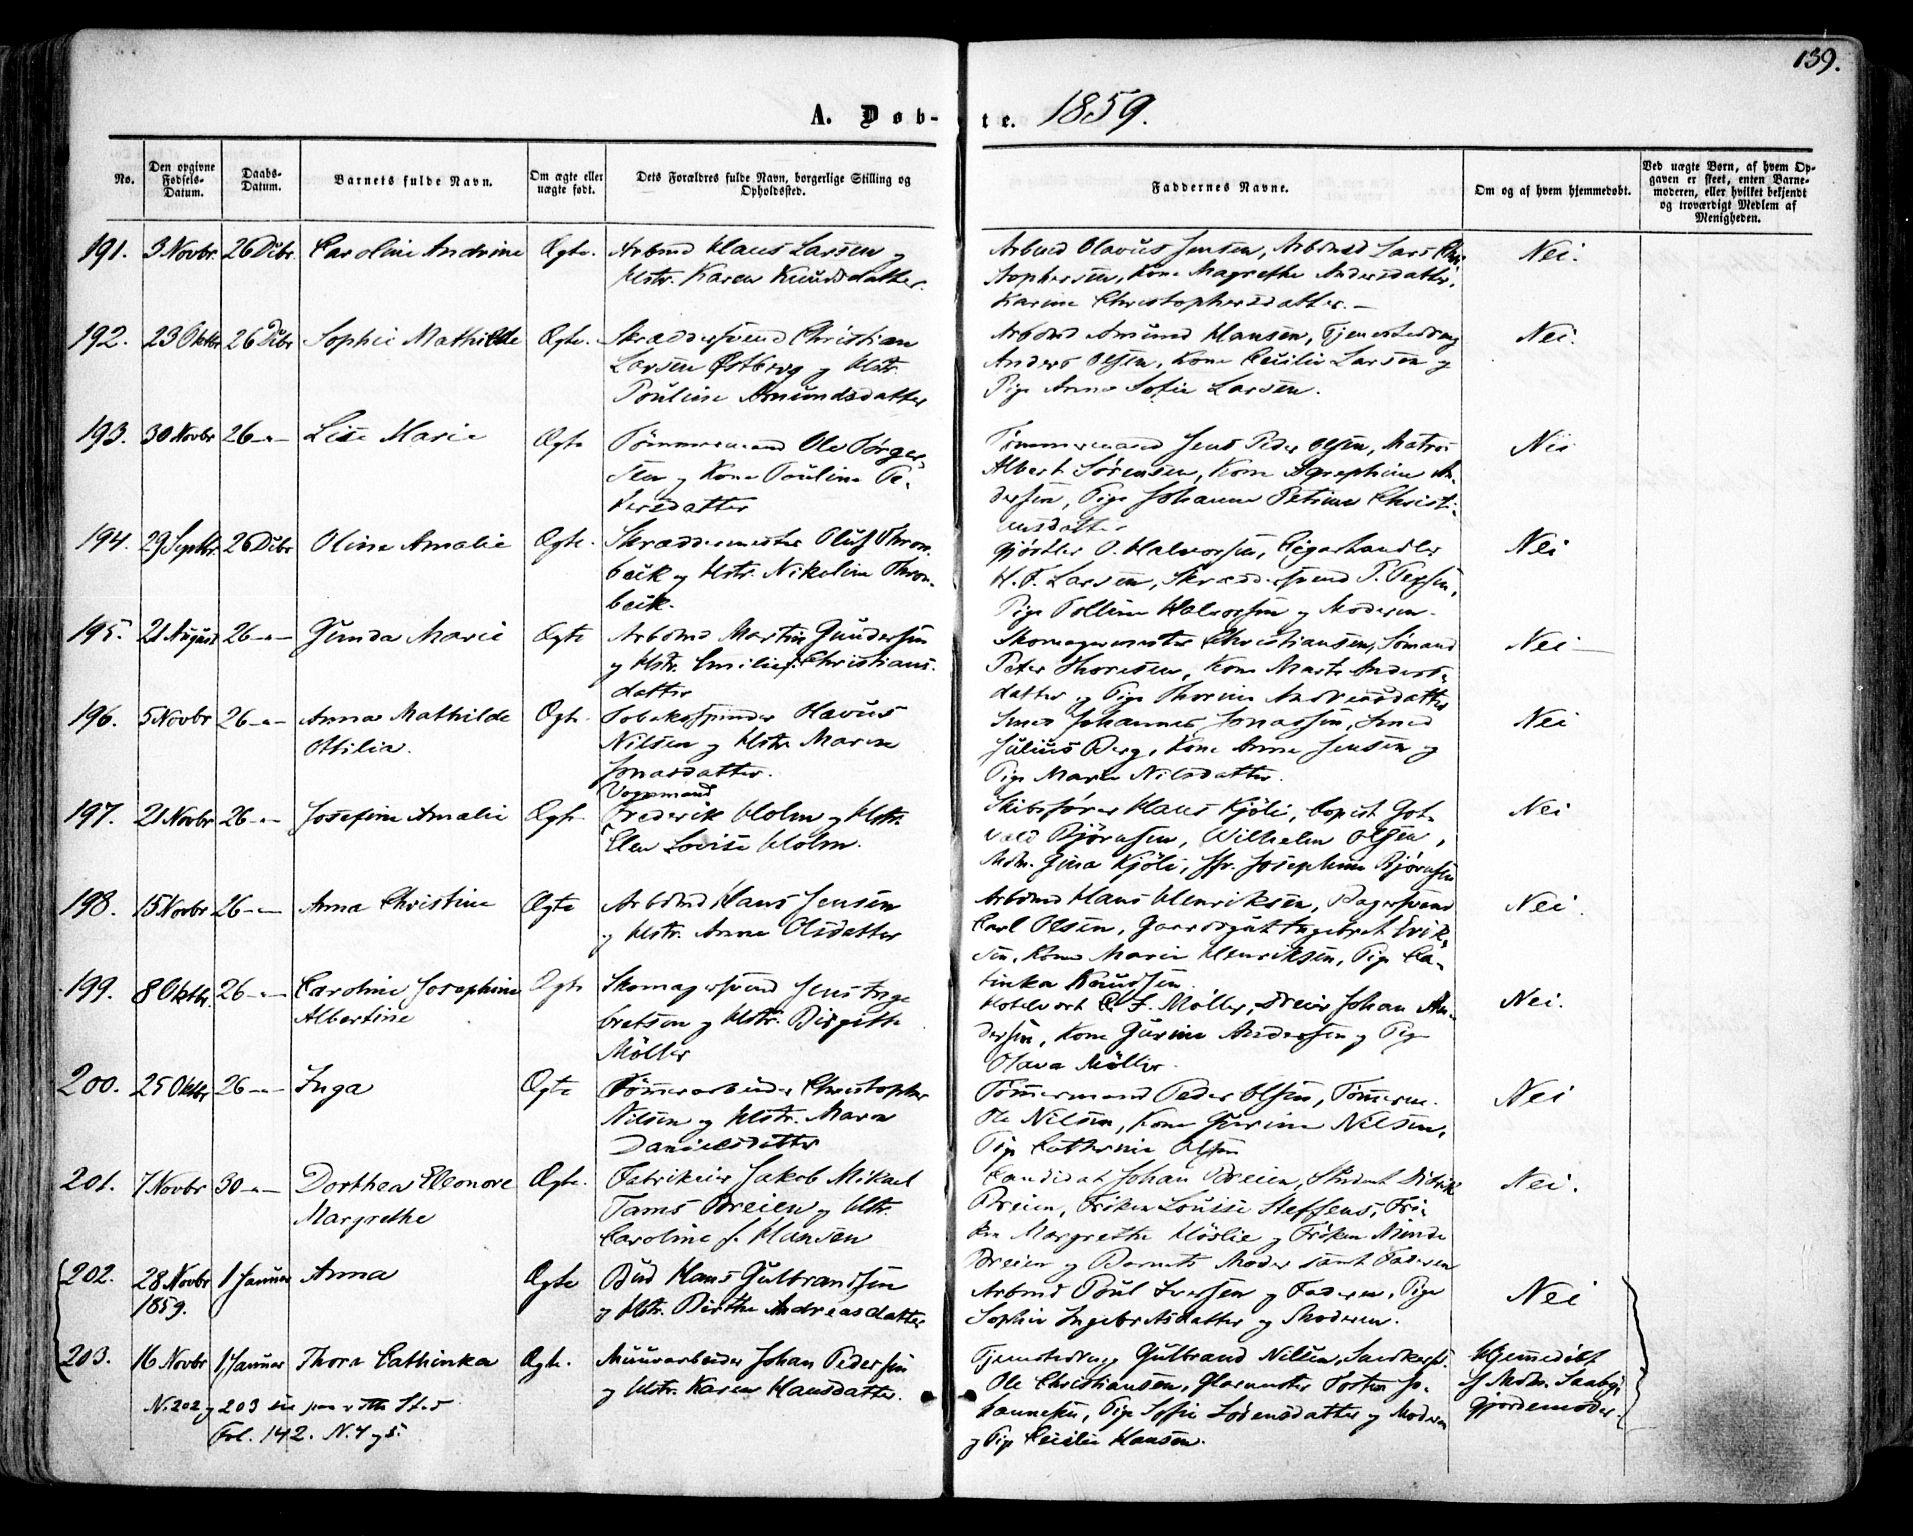 139.
A. Døb-te. 1859.
No.
Den opgivne Fødsels-Datum.
Daabs-Datum.
Barnets fulde Navn.
Om ægte eller uægte født.
Dets Forældres fulde Navn, borgerlige Stilling og Opholdssted.
Faddernes Navne.
Om og af hvem hjemmedøbt.
Ved uægte Børn, af hvem Opgaven er skeet, enten Barnemoderen, eller hvilket bekjendt og troværdigt Medlem af Menigheden.
191. 3 Novbr. 26 Dcbr. Caroline Andrine Ægte. Arbmd Hans Larsen og
Hstr. Karen Knudsdatter.
Arbmd Olavus Jensen, Arbmd Lars Chri
stophersen, Kone Magrethe Andersdatter,
Karine Christophersdatter. —
Nei.
192. 23 Oktbr 26 Dcbr Sophie Mathilde Ægte. Skræddersvend Christian
Larsen Østberg og Hstr.
Pouline Amundsdatter
Arbmd Amund Hansen, Tjenestedreng
Anders Olsen, Kone Cecilie Larsen og
Pige Anna Sofie Larsen.
Nei.
193. 30 Novbr 26 -"- Lise Marie Ægte Tømmermand Ole Jørgen-
sen og Kone Pouline Pe-
dersdatter
Tømmermand Jens Peder Olsen, Matros
Albert Sørensen, Kone Agrephine An-
dersen, Pige Johanne Petrine Christi-
ansdatter
Nei
194. 29 Septbr. 26 Dcbr Oline Amalie Ægte. Skræddermester Oluf Thron-
beck og Hstr. Nikoline Thron-
beck.
Gjørtler O. Halvorsen, Cigarhandler
H. F. Larsen, Skræddersvend P. Jepsen,
Pige Polline Halvorsen og Moderen.
Nei
195. 21 August 26 -"- Gunda Marie Ægte Arbdmd Martin Gundersen
og Hstr. Emilie Christians-
datter
Skomagermester Christiansen, Sømand
Peter Thoresen, Kone Marte Anders-
datter og Pige Thorine Andreasdatter
Nei —
196. 5 Novbr 26 -"- Anna Mathilde
Ottilia.
Ægte. Tobakspinder Olavus
Nilsen og Hstr. Maren
Jonasdatter.
Smed Johannes Jonassen, Smed
Julius Berg, Kone Anne Jensen og
Pige Maren Nilsdatter.
Nei
197. 21 Novbr 26 -"- Josefine Amalie Ægte Vognmand
Frederik Holm og Hstr.
Ellen Lovise Holm.
Skibsfører Hans Kjølie, Copist Got-
vald Bjørnsen, Wilhelm Olsen,
Mdm. Gina Kjøli, Jfr. Josephine Bjørnsen
Nei
198. 15 Novbr 26 -"- Anna Christine Ægte Arbdmd Hans Jensen
og Hstr. Anne Olsdatter
Arbdmd Hans Henriksen, Bagersvend
Carl Olsen, Gaardsgut Ingebret Erik-
sen, Kone Maren Henriksen, Pige Ca-
tinka Knudsen.
Nei.
199. 8 Oktbr. 26 -"- Caroline Josephine
Albertine
Ægte Skomagersvend Jens Inge
bretsen og Hstr. Birgitte
Møller
Hotelvært C. F. Møller, Dreier Johan An-
dersen, Kone Gurine Andersen og Pige
Olava Møller.
Nei.
200. 25 Oktbr 26 -"- Inga Ægte Tømmerarbeider Christopher
Nilsen og Hstr. Maren
Danielsdatter
Tømmermand Peder Olsen, Tømmerm.
Ole Nilsen, Kone Gurine Nilsen,
Pige Cathrine Olsen
Nei
201. 7 Novbr 30 -"- Dorthea Eleonore
Margrethe
Ægte. Fabrikeier Jakob Mikael
Tams Breien og Hstr.
Caroline f. Hansen
Candidat Johan Breien, Student Didrik
Breien, Frøken Louise Steffens, Frø-
ken Margrethe og Frøken Minda
Breien og Barnets Moder samt Faderen
Nei.
202. 28 Novbr
1859.
1 Januar Anna Ægte Bud Hans Gulbrandsen
og Hstr. Birthe Andreasdatter
Arbmd Poul Iversen og Faderen, Pige
Sophie Ingebretsdatter og Moderen.
Nei
203. 16 Novbr 1 Januar Thora Cathinka Ægte. Muurarbeider Johan Pedersen
og Hstr. Karen Hansdatter.
Tjenestedreng Gulbrand Nilsen,
Ole Christiansen, Glasmester Josten Jo-
hannesen, Pige Sofie Sørensdatter og Moderen
og Pige Cecilie Hansen.
Hjemmedøbt
af Mdm. Saaby,
Gjordemoder.
N. 202 og 203 paa rette Sted
Fol. 142. N. 4 og 5.